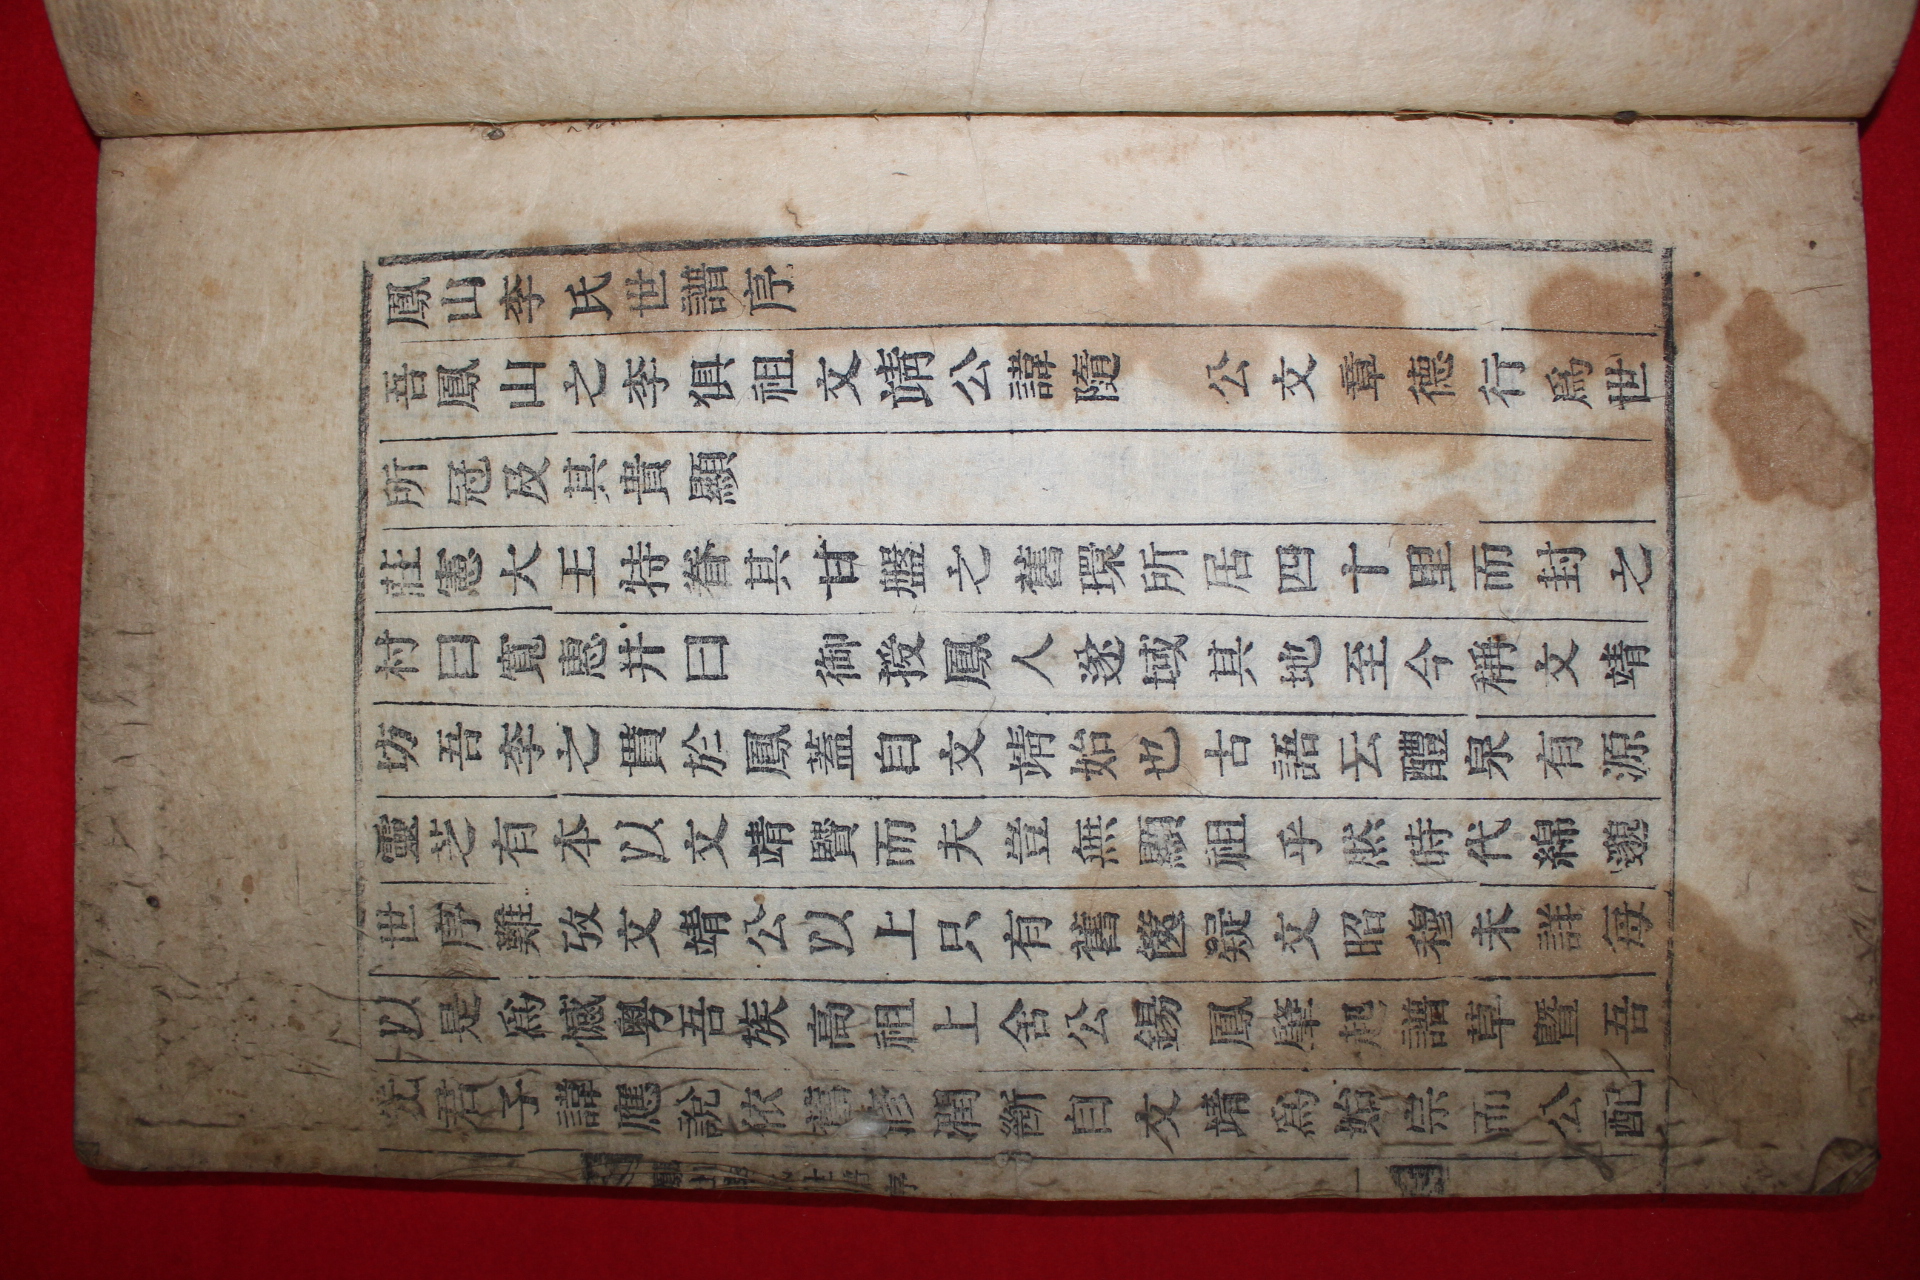 鳳山李氏世譜序
吾鳳山之李俱祖文靖公諱隨 公文章德行爲世
所冠及其貴顯
莊憲大王特眷其甘盤之舊環所居四十里而封之
村曰寬惠井曰 御授鳳人遂域其地至今稱文靖
坊吾李之貫於鳳蓋自文靖始也古語云醴泉有源
靈芝有本以文靖賢而夫豈無顯祖乎然時代綿邈
世序難攷文靖公以上只有舊篋疑文昭穆未詳每
以是爲憾粤吾族高祖上舍公錫鳳肇起譜草曁吾
君子諱應說依舊修潤斷自文靖爲始宗而公配
鳳山李氏世譜序 一